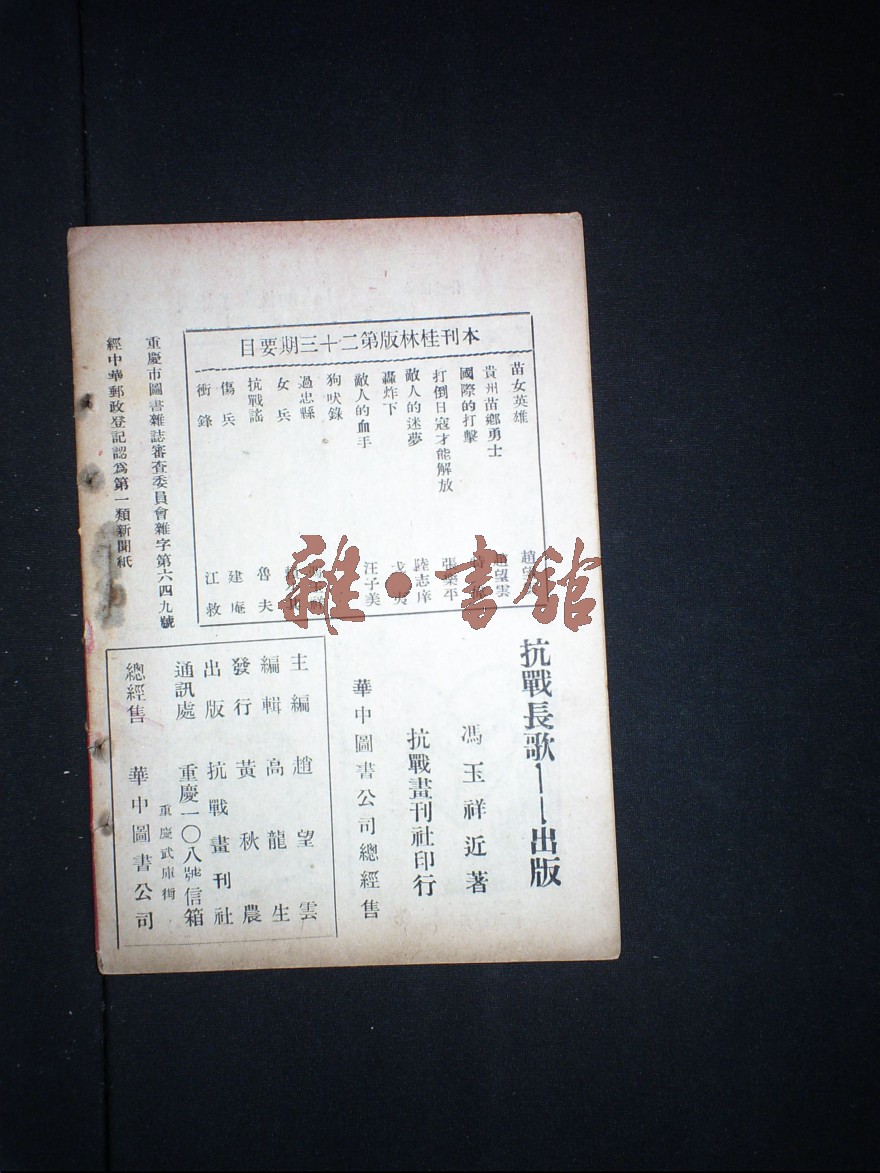 本刊桂林版第二十三期要目
苗女英雄 趙望
貴州苗鄉勇士 趙望雲
國際的打擊
打倒日寇才能解放 張樂平
敵人的迷夢 陸志庠
轟炸下
敵人的血手 汪子美
狗吠錄
過忠縣
女兵 魯夫
抗戰謠
傷兵 建庵
衝鋒 江敉
重慶市圖書雜誌審查委員會雜字第六四九號
經中華郵政登記認爲第一類新聞紙
抗戰長歌——出版
馮玉祥近著
抗戰畫刊社印行
華中圖書公司總經售
主編 趙望雲
編輯 高龍生
發行 黃秋農
出版 抗戰畫刊社
通訊處 重慶一〇八號信箱
重慶武庫街
總經售 華中圖書公司
雜·書館